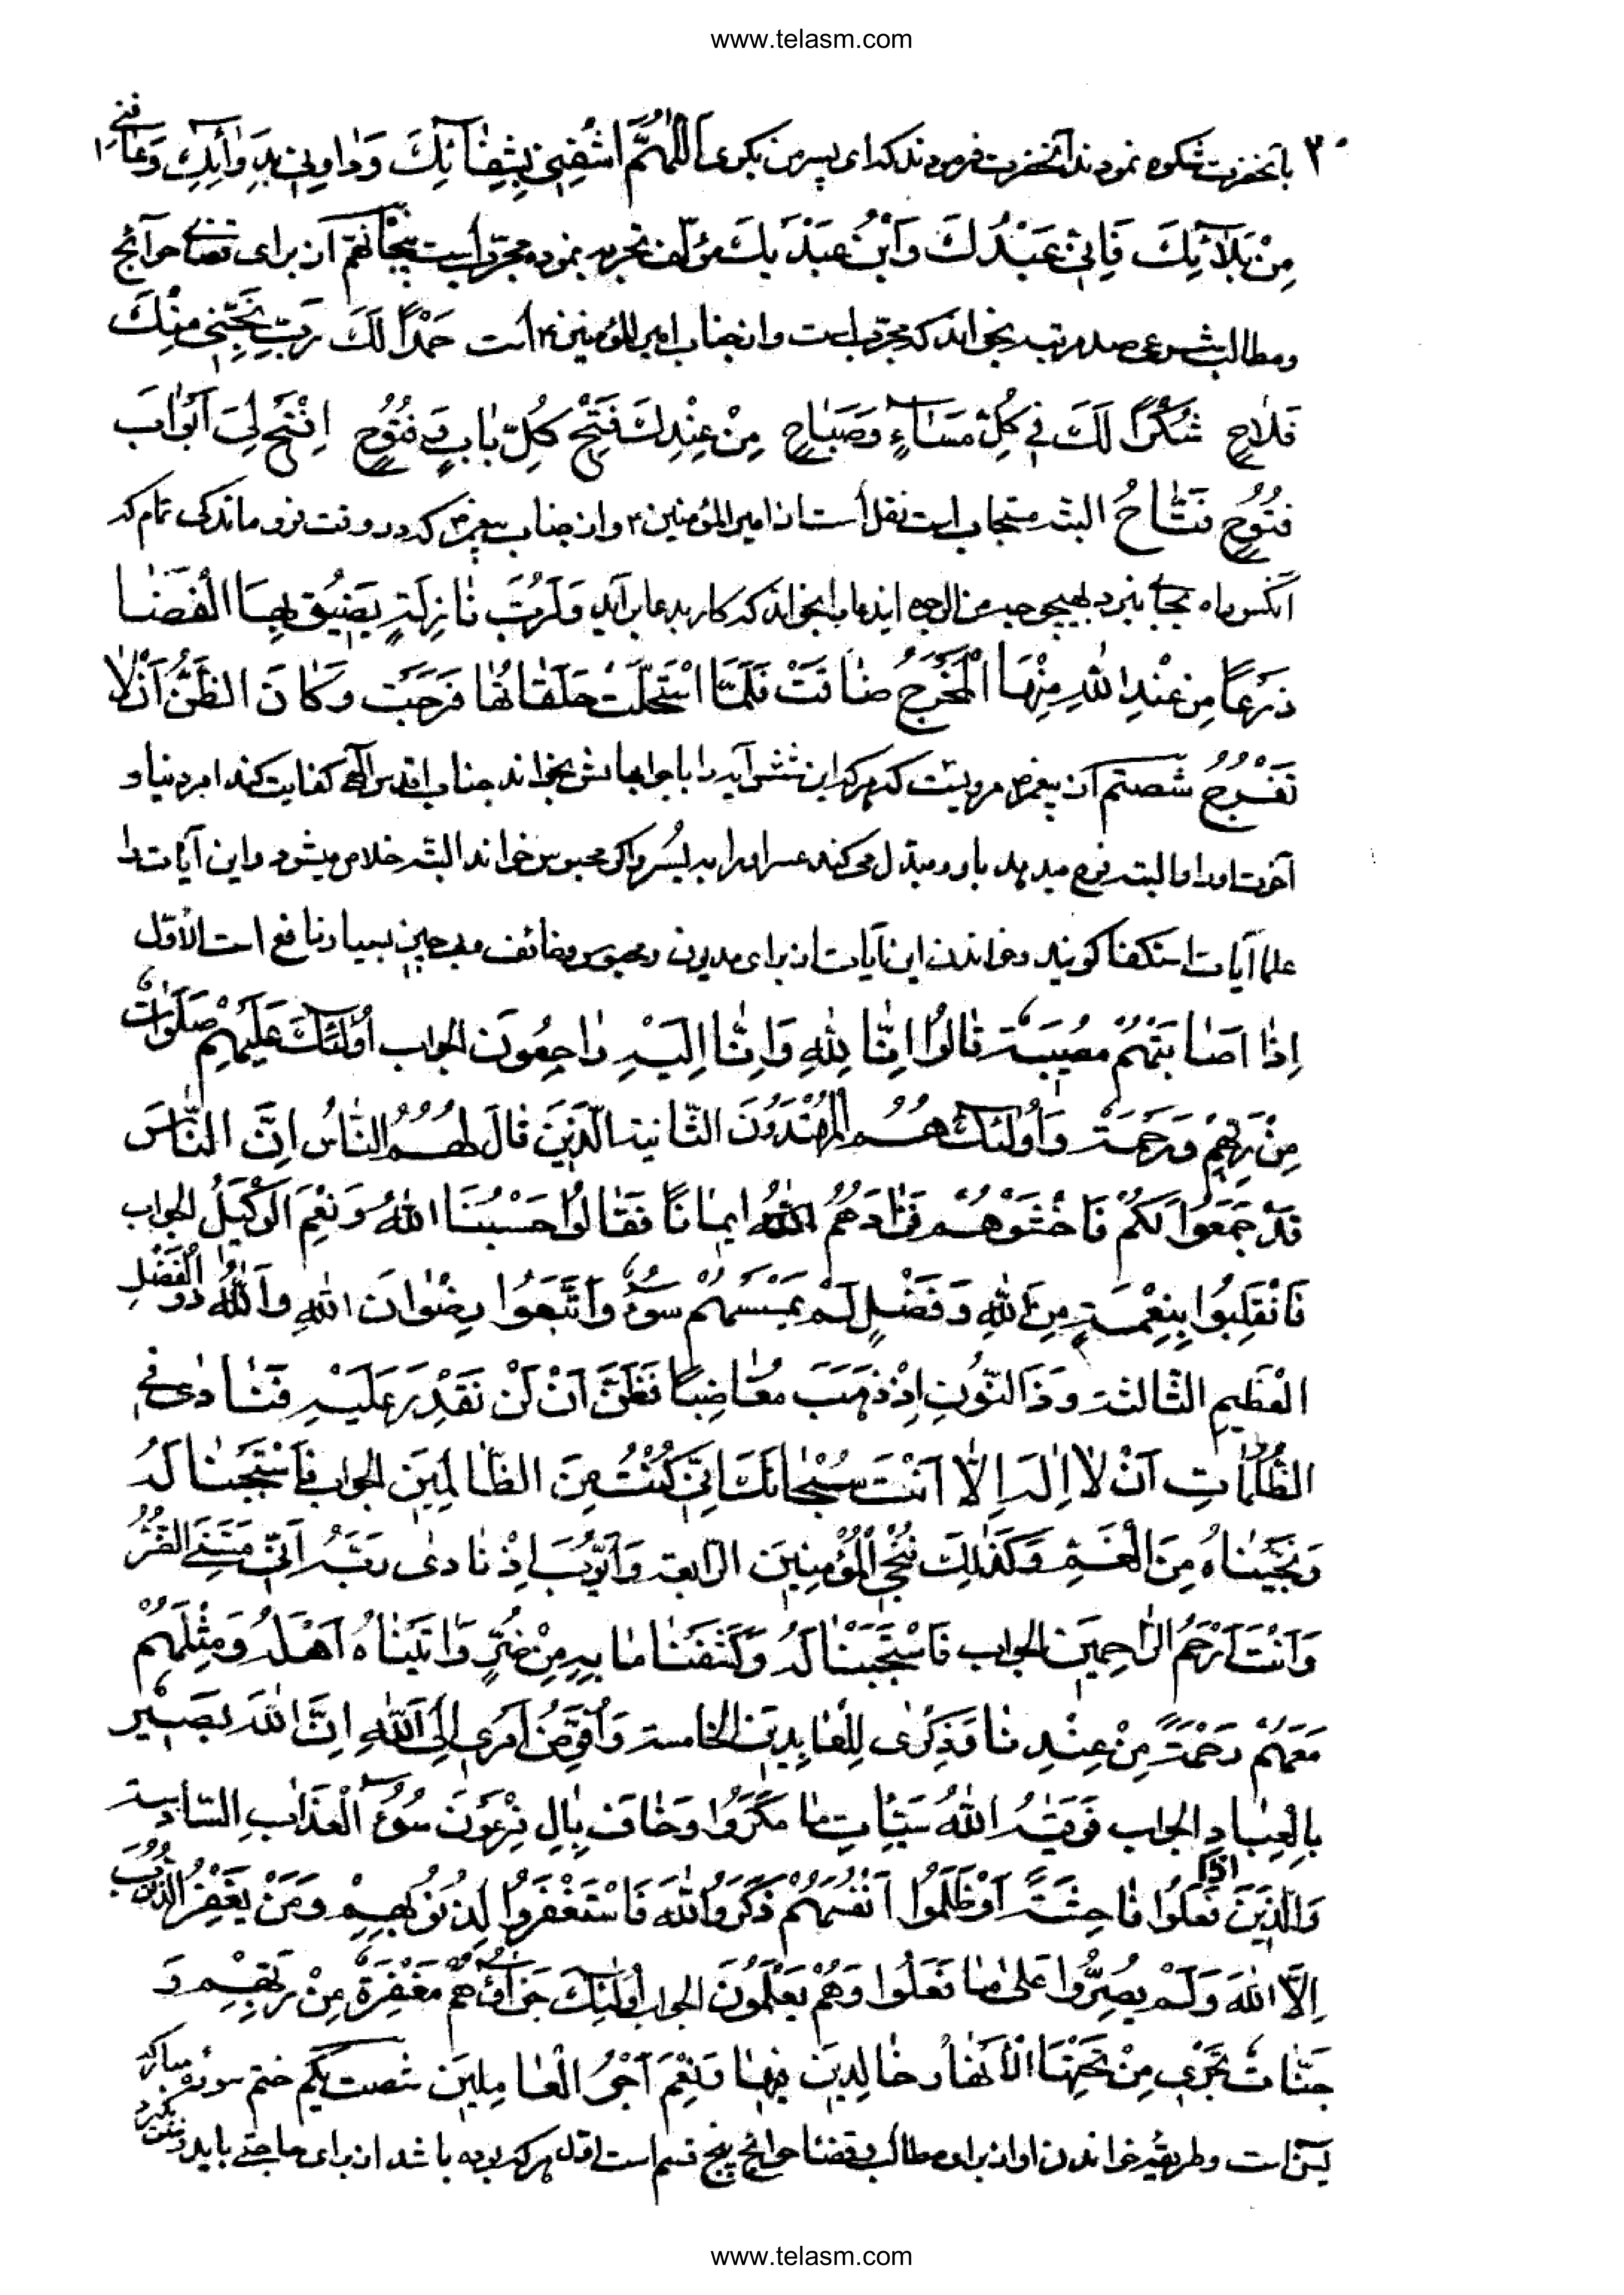 www.telasm.com
۳۰ بآنحضرت شکوه نمودند آنحضرت فرمودند که ای پسر من بگوی اَللّٰهُمَّ اشْفِنِی بِشِفٰائِكَ وَدٰاوِنِی بِدَوٰائِكَ وَعٰافِنِی
مِنْ بَلٰائِكَ فَاِنِّی عَبْدُكَ وَابْنُ عَبْدَیْكَ مؤلف تجربه نموده مجرّب است پنجاه نهم آن برای قضای حوائج
ومطالب شرعی صد مرتبه بخواند که مجرّب است و از جناب امیرالمؤمنین۴ است حَمْداً لَكَ رَبِّ نَجِّنِی مِنْكَ
فَلٰاحٍ شُكْرًا لَكَ فِی كُلِّ مَسٰاءٍ وَصَبٰاحٍ مِنْ عِنْدِكَ فَتْحُ كُلِّ بٰابٍ فُتُوحٍ اِفْتَحْ لِیَ اَبْوٰابَ
فُتُوحٍ فَتّٰاحُ البته مستجاب است نقل است از امیرالمؤمنین۴ و از جناب پیغمبر۴ که در وقت فرو ماندگی تمام که
آنکس راه بجایی نبرد بهیچ من الوجوه ایندعا را بخواند که کار بدعا برآید وَلَرُبَّ نٰازِلَةٍ یَضِیقُ بِهَا الْفَضٰا
ذَرْعًا مِنْ عِنْدِ اللّٰهِ مِنْهَا الْمَخْرَجُ ضٰاقَتْ فَلَمَّا اسْتَحْلَتْ حَلَقٰاتُهٰا فَرَجَتْ وَكٰانَ الظَّنُّ اَنْ لٰا
تَفْرُجُ شصتم آن پیغمبر۴ مرویست که هرکه این شش آیه را با جوابهایش بخواند جناب اقدس الهی کفایت کند امر دنیا و
آخرت او را و البته فرج میدهد باو و مبدّل میکند عسر او را به یُسر و اگر محبوس خواند البته خلاص میشود و این آیات را
علما آیات استکفا گویند و خواندن این آیات از برای مدیون و محبوس و خائف و مبتلا بسیار نافع است الاوّل
اِذٰا اَصٰابَتْهُمْ مُصِیبَةٌ قٰالُوا اِنّٰا لِلّٰهِ وَاِنّٰا اِلَیْهِ رٰاجِعُونَ الجواب اُولٰئِكَ عَلَیْهِمْ صَلَوٰاتٌ
مِنْ رَبِّهِمْ وَرَحْمَةٌ وَاُولٰئِكَ هُمُ الْمُهْتَدُونَ الثّانیة الَّذِینَ قٰالَ لَهُمُ النّٰاسُ اِنَّ النّٰاسَ
قَدْ جَمَعُوا لَكُمْ فَاخْشَوْهُمْ فَزٰادَهُمُ اللّٰهُ اِیمٰانًا فَقٰالُوا حَسْبُنَا اللّٰهُ وَنِعْمَ الْوَكِیلُ الجواب
فَانْقَلِبُوا بِنِعْمَةٍ مِنَ اللّٰهِ وَفَضْلٍ لَمْ یَمْسَسْهُمْ سُوءٌ وَاتَّبَعُوا رِضْوٰانَ اللّٰهِ وَاللّٰهُ ذُو الْفَضْلِ
الْعَظِیمِ الثّالثة وَذَا النُّونِ اِذْ ذَهَبَ مُغٰاضِبًا فَظَنَّ اَنْ لَنْ نَقْدِرَ عَلَیْهِ فَنٰادىٰ فِی
الظُّلُمٰاتِ اَنْ لٰا اِلٰهَ اِلّٰا اَنْتَ سُبْحٰانَكَ اِنِّی كُنْتُ مِنَ الظّٰالِمِینَ الجواب فَاسْتَجَبْنٰا لَهُ
وَنَجَّیْنٰاهُ مِنَ الْغَمِّ وَكَذٰلِكَ نُنْجِی الْمُؤْمِنِینَ الرّابعة وَاَیُّوبَ اِذْ نٰادىٰ رَبَّهُ اَنِّی مَسَّنِیَ الضُّرُّ
وَاَنْتَ اَرْحَمُ الرّٰاحِمِینَ الجواب فَاسْتَجَبْنٰا لَهُ وَكَشَفْنٰا مٰا بِهِ مِنْ ضُرٍّ وَاٰتَیْنٰاهُ اَهْلَهُ وَمِثْلَهُمْ
مَعَهُمْ رَحْمَةً مِنْ عِنْدِنٰا وَذِكْرىٰ لِلْعٰابِدِینَ الخامسة وَاُفَوِّضُ اَمْرِی اِلَى اللّٰهِ اِنَّ اللّٰهَ بَصِیرٌ
بِالْعِبٰادِ الجواب فَوَقٰیهُ اللّٰهُ سَیِّئٰاتِ مٰا مَكَرُوا وَحٰاقَ بِاٰلِ فِرْعَوْنَ سُوءُ الْعَذٰابِ السّادسة
وَالَّذِینَ اِذٰا فَعَلُوا فٰاحِشَةً اَوْ ظَلَمُوا اَنْفُسَهُمْ ذَكَرُوا اللّٰهَ فَاسْتَغْفَرُوا لِذُنُوبِهِمْ وَمَنْ یَغْفِرُ الذُّنُوبَ
اِلَّا اللّٰهَ وَلَمْ یُصِرُّوا عَلىٰ مٰا فَعَلُوا وَهُمْ یَعْلَمُونَ الجواب اُولٰئِكَ جَزٰاؤُهُمْ مَغْفِرَةٌ مِنْ رَبِّهِمْ وَ
جَنّٰاتٌ تَجْرِی مِنْ تَحْتِهَا الْاَنْهٰارُ خٰالِدِینَ فِیهٰا وَنِعْمَ اَجْرُ الْعٰامِلِینَ شصت یکم ختم سوره مبارکه
یس است و طریقه خواندن او از برای مطالب و قضا حوائج پنج قسم است اوّل هرکه بوده باشد از برای حاجتی باید
www.telasm.com